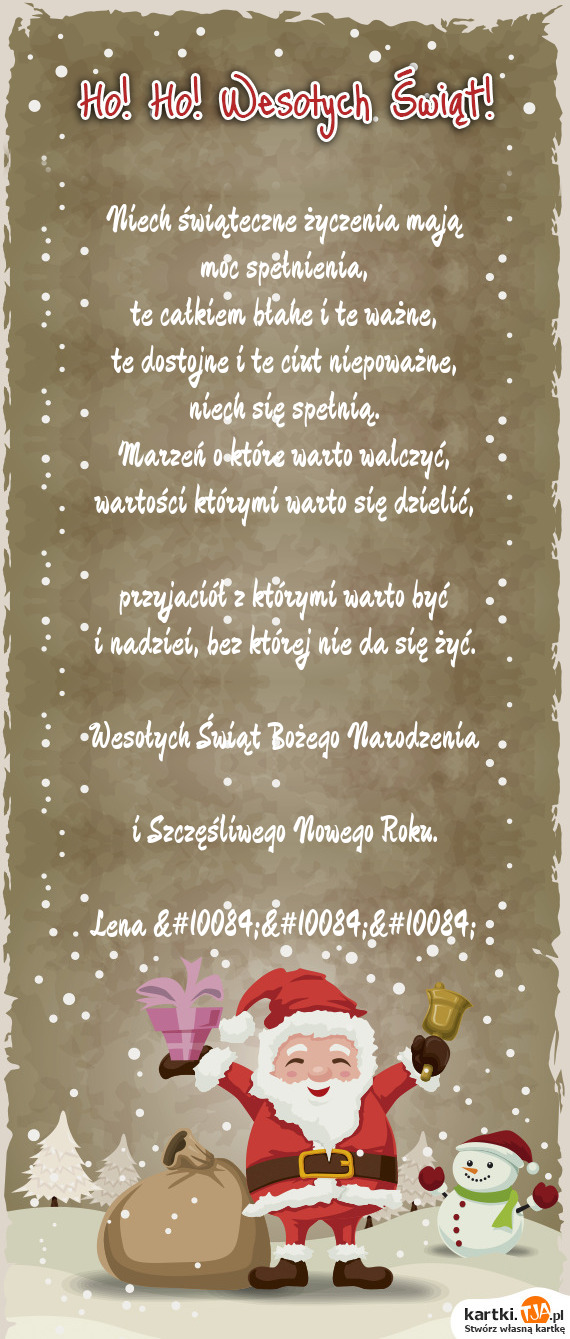 Ho! Ho! Wesołych Świąt!
Niech świąteczne życzenia mają
moc spełnienia,
te całkiem błahe i te ważne,
te dostojne i te ciut niepoważne,
niech się spełnią.
Marzeń o które warto walczyć,
wartości którymi warto się dzielić,
przyjaciół z którymi warto być
i nadziei, bez której nie da się żyć.
Wesołych Świąt Bożego Narodzenia
i Szczęśliwego Nowego Roku.
Lena &#10084;&#10084;&#10084;
kartki.TJA.pl
Stwórz własną kartkę